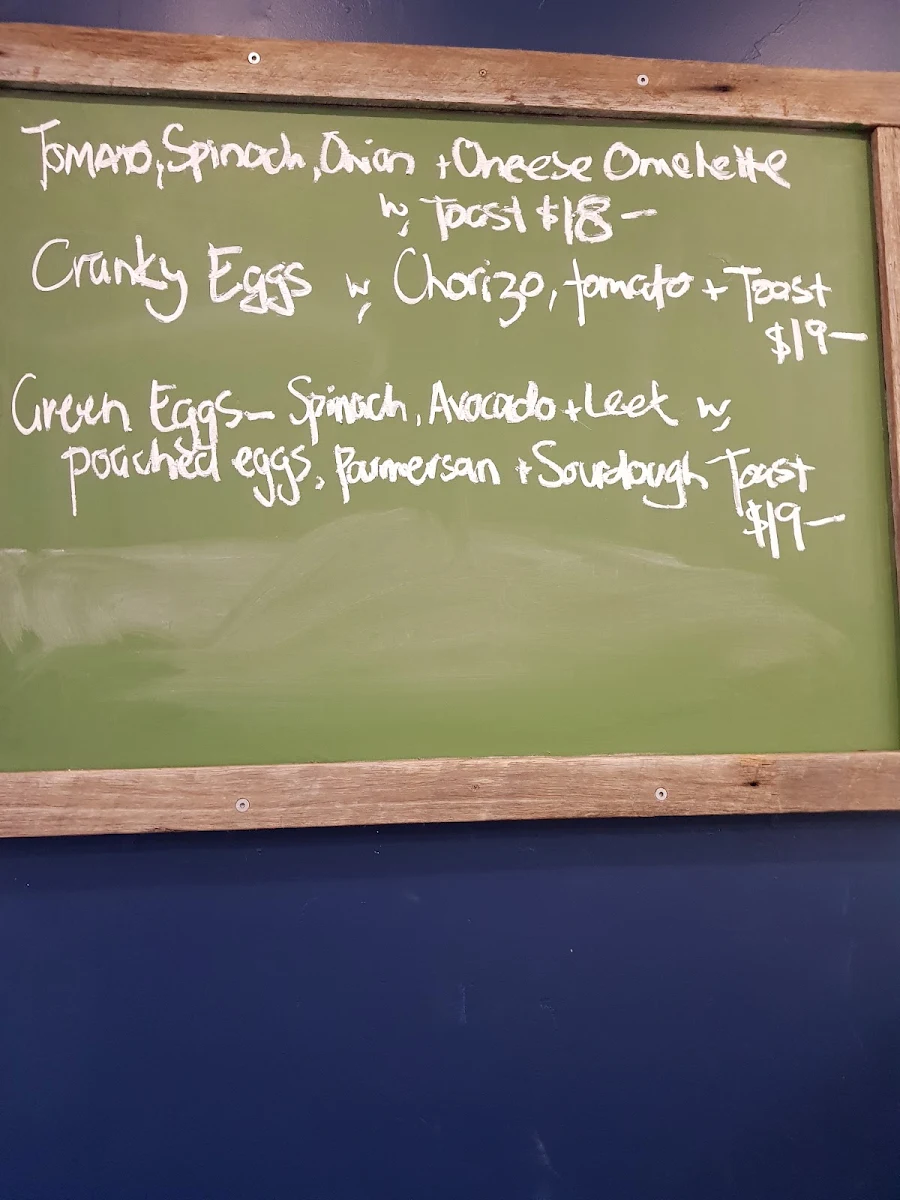 Tomato, Spinach, Onion + Cheese Omelette
w, Toast $18-
Cranky Eggs w, Chorizo, tomato + Toast
$19-
Green Eggs- Spinach, Avocado + Leek w,
poached eggs, Parmersan + Sourdough Toast
$19-